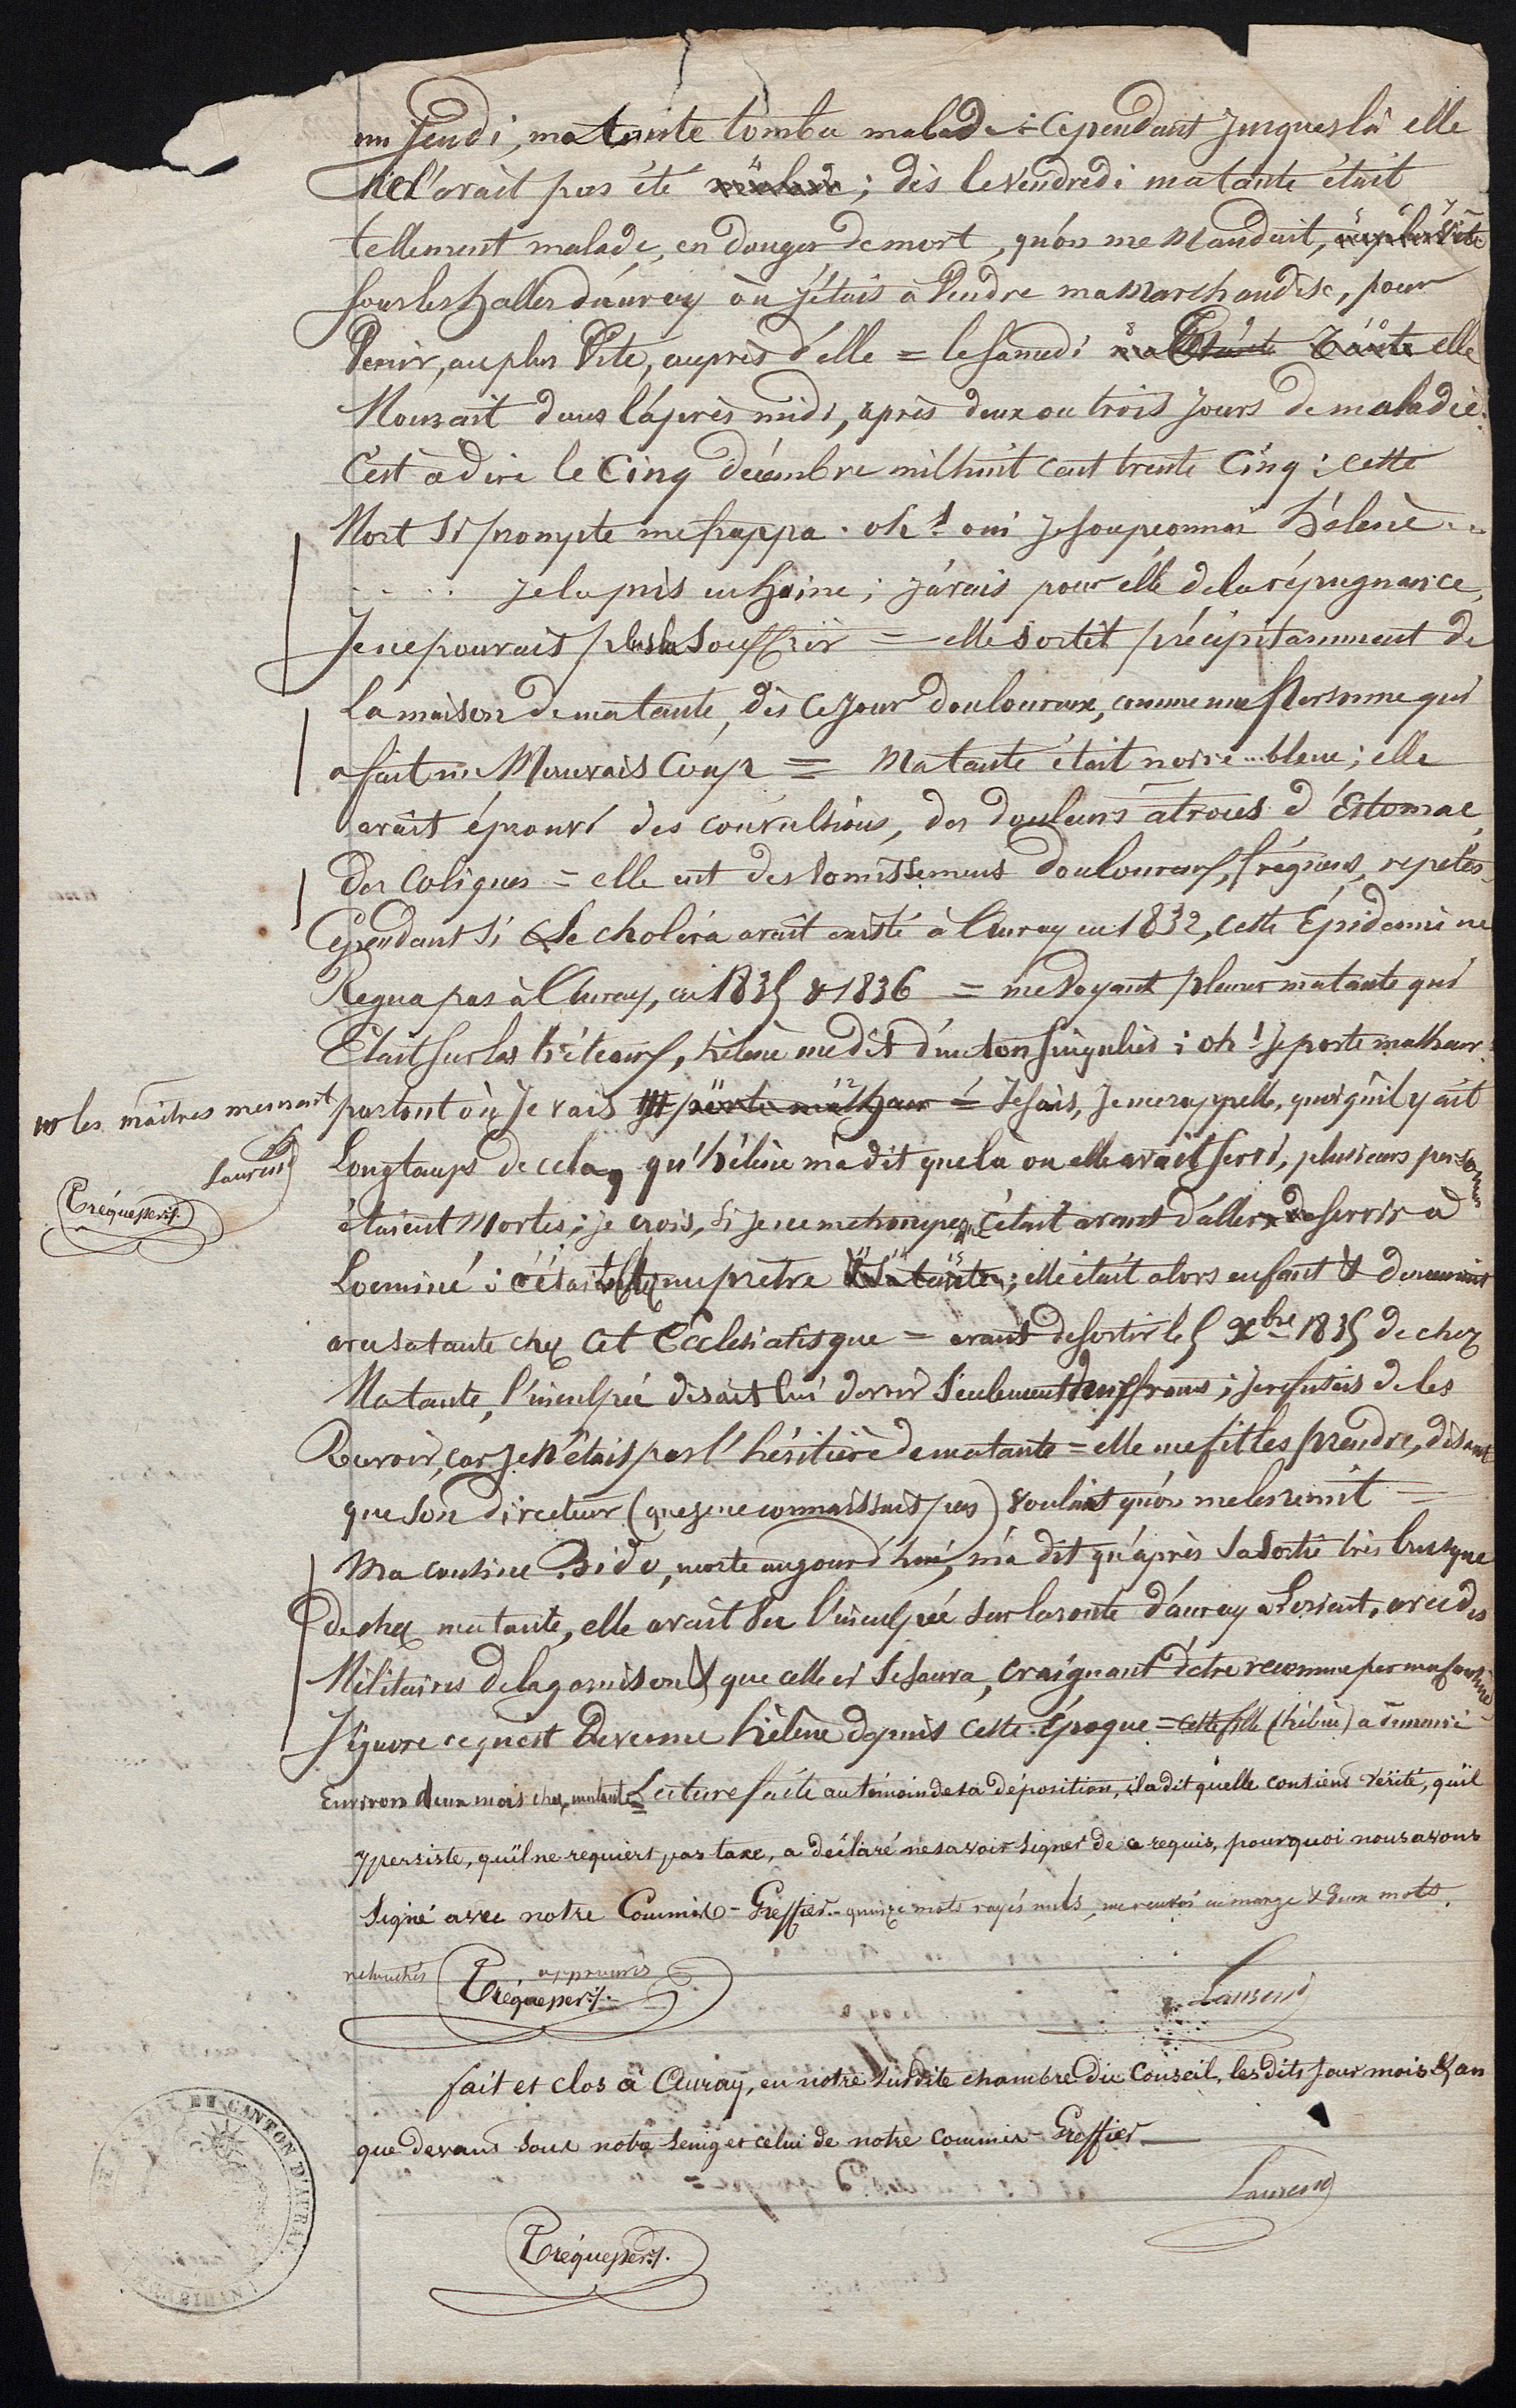 un Jeudi, ma tante tomba malade : cependant jusques là elle
ne l'avait pas été malade ; dès le vendredi ma tante était
tellement malade, en danger de mort, qu'on me Mandait, au plus Vite
sous les halles d'auray où j'étais à Vendre ma Marchandise, pour
Venir, au plus Vite, auprès d'elle = le samedi ma tante elle
Mourait dans l'après midi, après deux ou trois jours de maladie.
C'est à dire le Cinq décembre mil huit cent trente Cinq : cette
Mort si prompte me frappa . oh ! oui je soupçonnai hélène ...
..... je la pris en haine ; j'avais pour elle de la répugnance,
Je ne pouvait plus la souffrir = elle sortit précipitamment de
la maison de ma tante, dès ce jour douloureux, comme une Personne qui
a fait un Mauvais Coup = Ma tante était noire ... bleue ; elle
avait éprouvé des convulsions, des douleurs atroces d'Estomac,
Des Coliques = elle eut des Vomissemens douloureux, fréquens, repetés.
Cependant si Le choléra avait existé à Auray en 1832, cette Épidémie ne
Regna pas à Auray, en 1835 & 1836 = me Voyant pleurer ma tante qui
Etait sur les tréteaux, hélène me dit d'un ton singulier : oh ! je porte malheur.
partout où je vais je porte malheur = Je sais, je me rappelle, quoiqu'il y ait
Longtemps de cela, qu'hélène m'a dit que là où elle avait servi, plusieurs personnes
étaient Mortes ; je crois, si je ne me trompe, c'était avant d'aller servir à
Locminé : c'était chez un prêtre & sa tante ; elle était alors enfant & demeurait
avec sa tante chez cet Ecclésiatisque = avant de sortir le 5 Xbre 1835 de chez
Ma tante, l'inculpée disait lui devoir seulement francs ; je refusais de les
Recevoir, car je N'étais pas l'héritière de ma tante = elle me fit les prendre, disant
que son directeur (que je ne connaissait pas) voulait qu'on me les remit =
Ma cousine Bido, morte aujourd'hui, m'a dit qu'après sa Sortie très brusque
De chez ma tante, elle avait Vu l'inculpée sur la route d'auray à Lorient, avec des
Militaires de la garnison & que celle ci se sauva, craignant d'être reconnue par ma cousine
J'ignore ce qu'est Devenue hélène depuis cette Époque = cette fille (hélène) a demeuré
Environ deux mois chez ma tante = Lecture faite au témoin de sa déposition, il a dit qu'elle contient vérité, qu'il
y persiste, qu'il ne requiert pas taxe, a déclaré ne savoir signer de ce requis, pourquoi nous avons
Signé avec notre Commis - Greffier .. quinze mots rayés nuls, un renvoi en marge & deux mots
retouchés approuvés
Tréquesser
Laurent
fait et clos à Auray, en notre susdite chambre du Conseil, les dits jour mois & an
que devant sous notre seing et celui de notre commis - Greffier
Laurent
Tréquesser
les maîtres meurent
Laurent
Tréquesser
CANTON D'AURAY